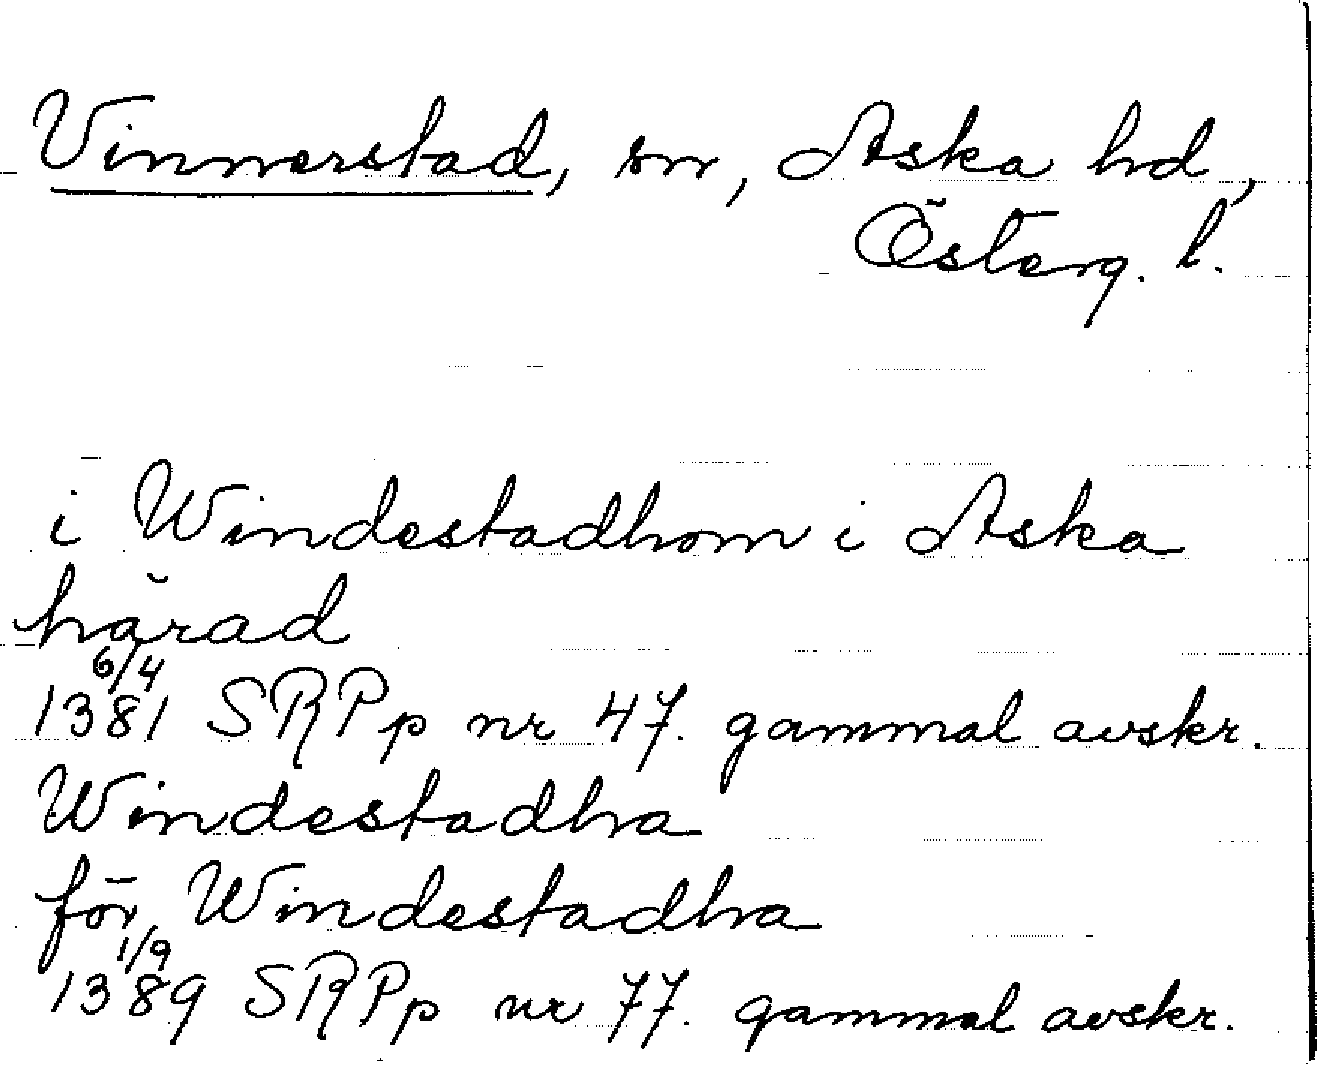 Vinnerstad, sn, Aska hd,
Österg. l.
i Windestadhom i Aska
härad
6/4
1381 SRPp nr 47. gammal avskr.
Windestadha
för Windestadha
1/9
1389 SRPp nr 77. gammal avskr.